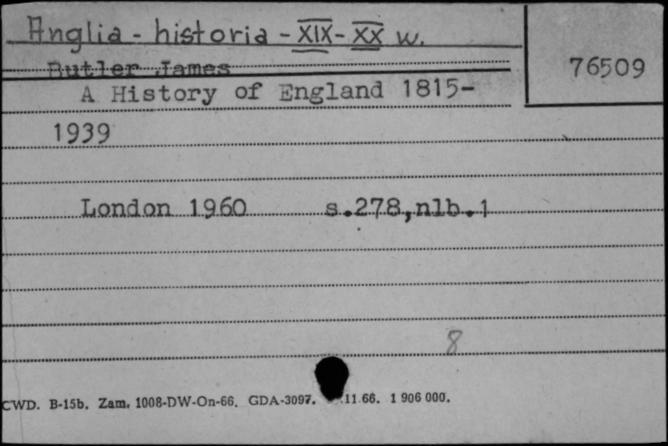 Anglia - historia - XIX - XX w.
Butler James
76509
A History of England 1815-
1939
London 1960 s.278,nlb.1
8
CWD. B-15b. Zam. 1008-DW-On-66. GDA-3097. .11.66. 1 906 000.